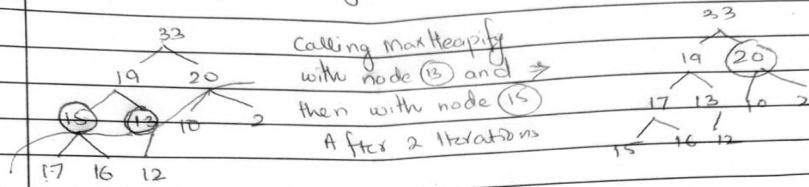 33
19 20
15 13 10 2
17 16 12
Calling MaxHeapify
with node 13 and →
then with node 15
After 2 Iterations
33
19 20
17 13 10 2
15 16 12